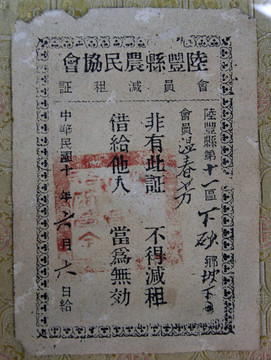 陸豐縣農民協會
會員減租証
陸豐縣第十一區下砂鄉坎下
會員温春芳
非有此証　不得減租
借給他人　當為無効
中華民國十　年六月六日給